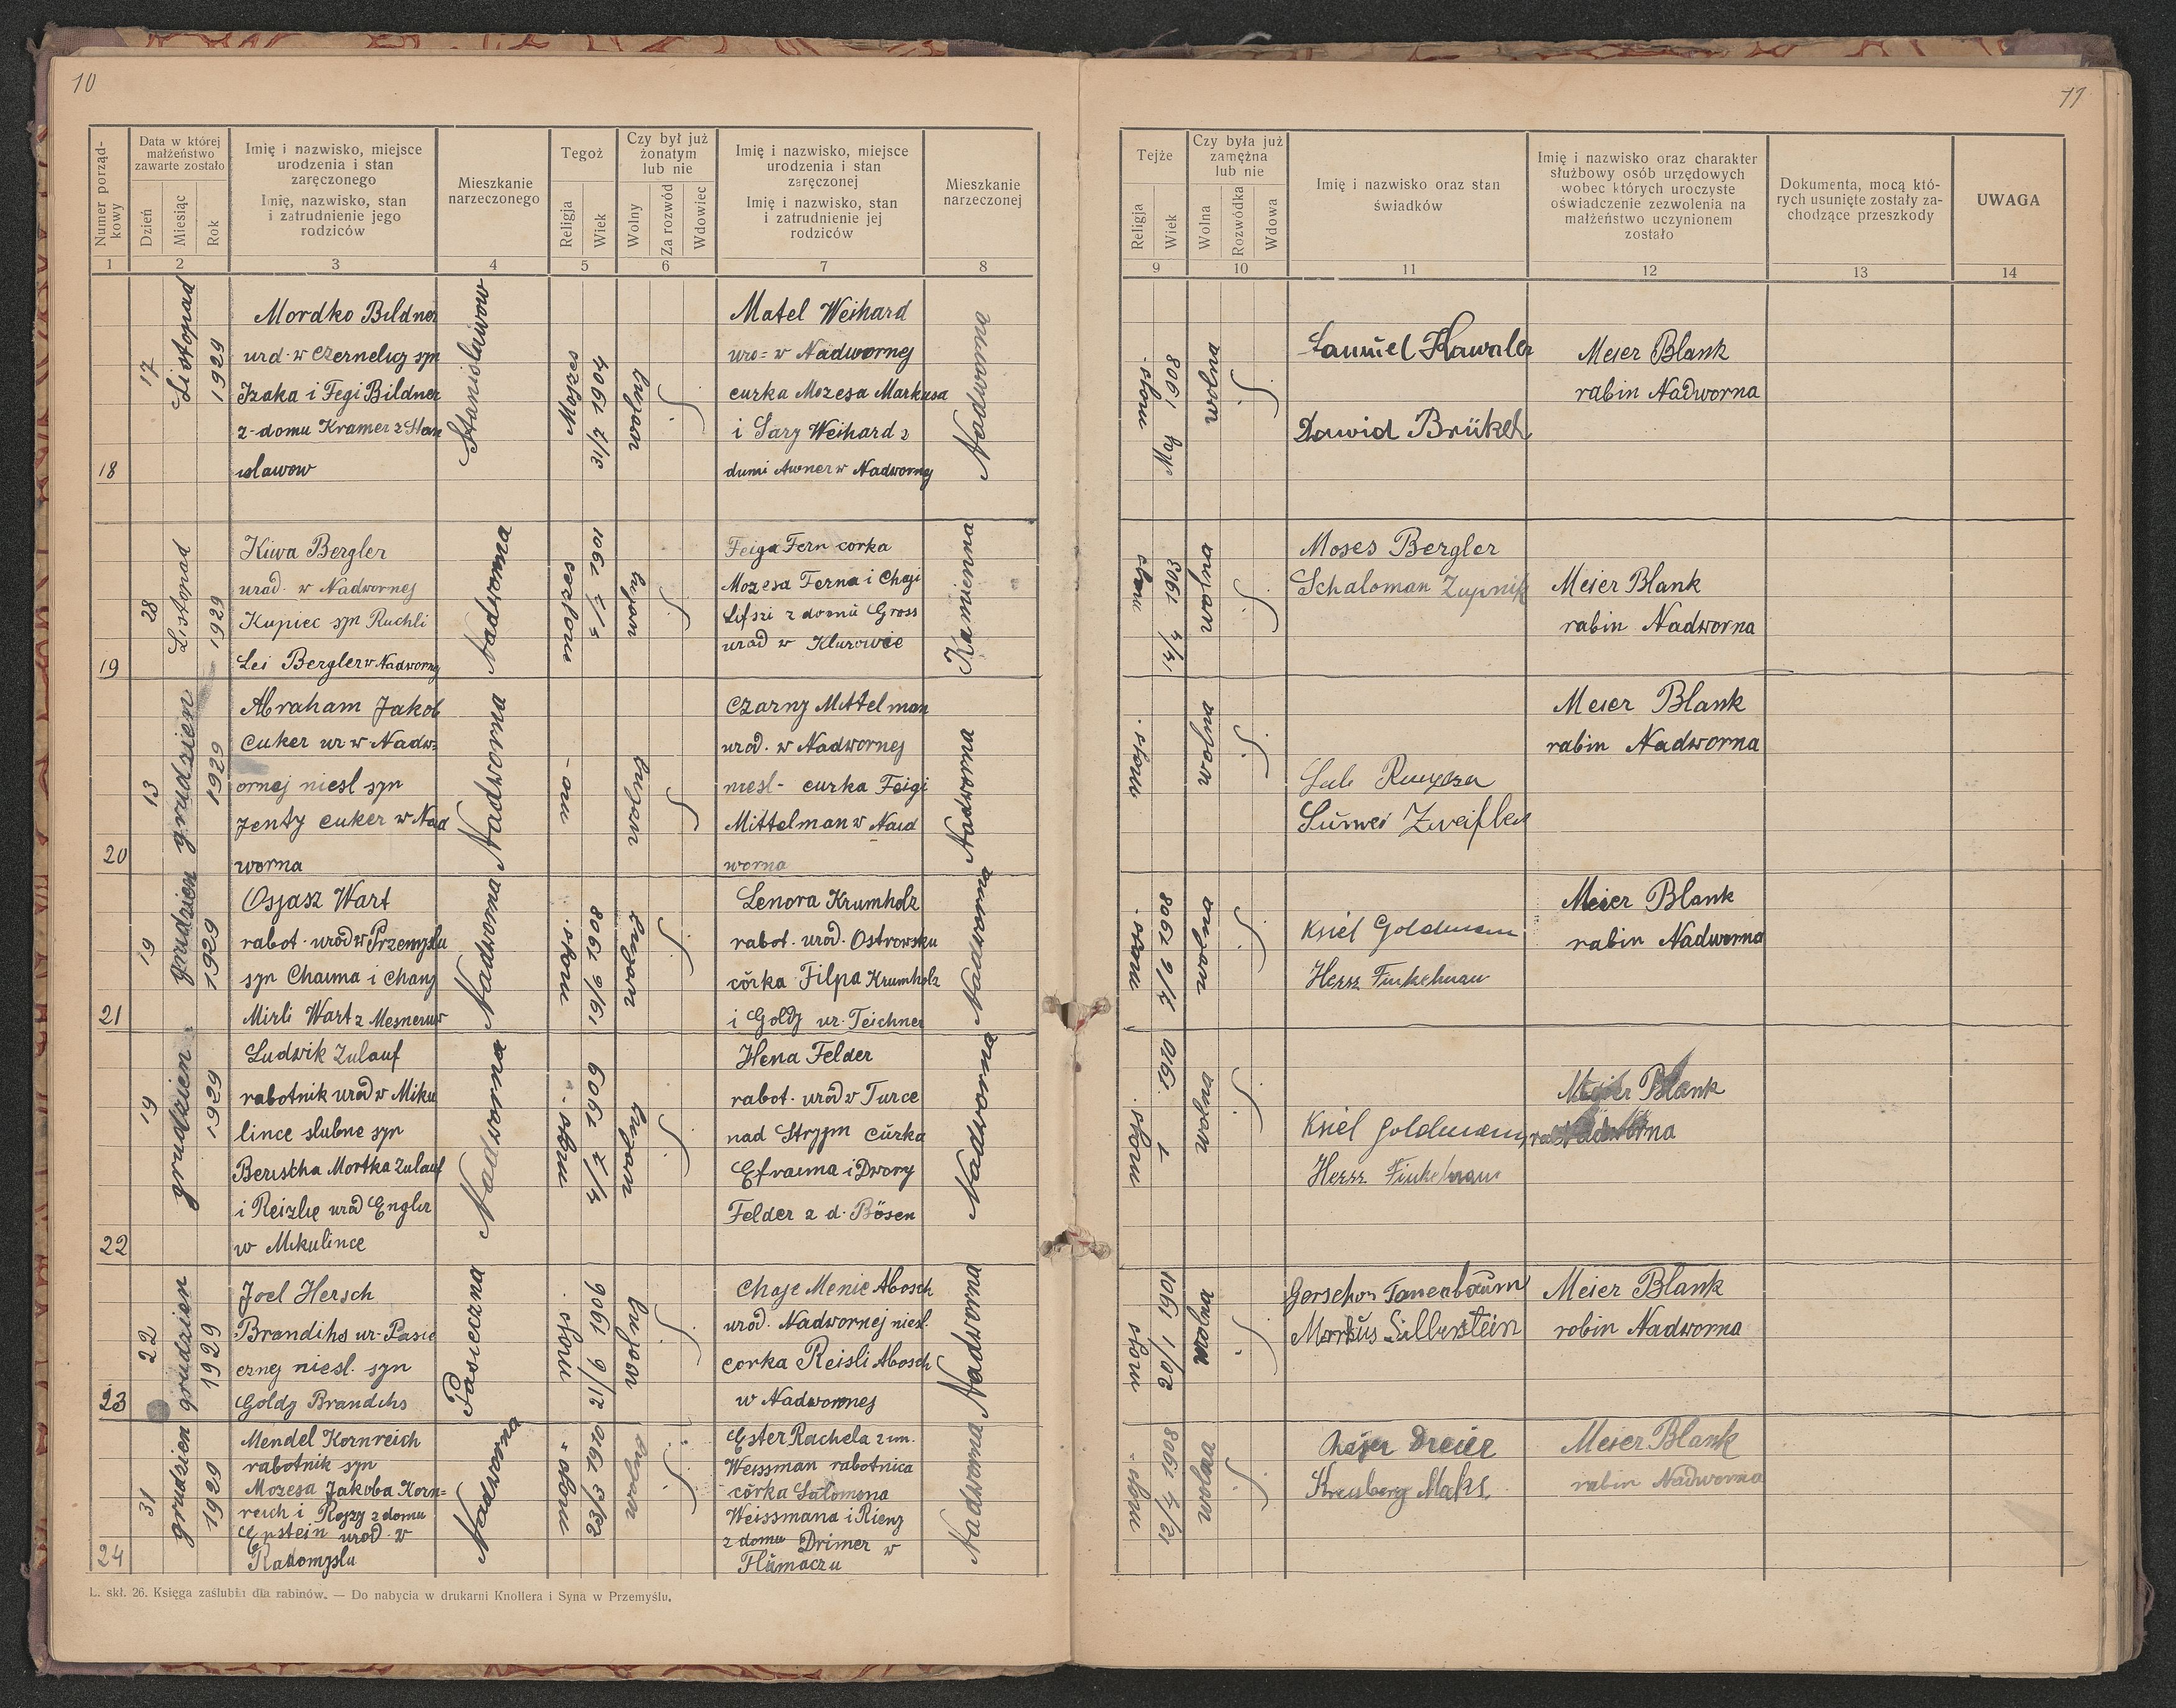 10
Numer porządkowy
Data w której małżeństwo zawarte zostało
Dzień
Miesiąc
Rok
Imię i nazwisko, miejsce urodzenia i stan zaręczonego
Imię, nazwisko, stan i zatrudnienie jego rodziców
Mieszkanie narzeczonego
Tegoż
Religja
Wiek
Czy był już żonatym lub nie
Wolny
Za rozwód
Wdowiec
Imię i nazwisko, miejsce urodzenia i stan zaręczonej
Imię i nazwisko, stan i zatrudnienie jej rodziców
Mieszkanie narzeczonej
1 2 3 4 5 6 7 8
18
17
Listopad
1929
Mordko Bildner
urd. w Czernelicy syn
Izaka i Fegi Bildner
z-domu Kramer z Stan
islawow
Stanislawow
Mojżesz
31/7 1904
wolny
Matel Weihard
uro= w Nadwornej
curka Mozesa Markusa
i Sary Weihard z
dumi Awner w Nadwornej
Nadworna
19
28
Listopad
1929
Kiwa Bergler
urad. w Nadwornej
Kupiec syn Ruchli
Lei Bergler w Nadwornej
Nadworna
5/7 1901
wolny
Feiga Fern corka
Mozesa Ferna i Chaji
Lifszi z domu Gross
urad w Klurowie
Kamienna
20
13
grudzien
1929
Abraham Jakob
Cuker ur w Nadw=
ornej niesl syn
Jenty Cuker w Nad
worna
Nadworna
wolny
Czarny Mittelman
urod. w Nadwornej
niesl- curka Feigi
Mittelman w Nad
worna
Nadworna
21
19
grudzien
1929
Osjasz Wart
rabot. urod w Przemyslu
syn Chaima i Chany
Mirli Wart z Mesnerów
Nadworna
19/9 1908
wolny
Lenora Krumholz
rabot. urod. Ostrowsku
córka Filpa Krumholz
i Goldy ur. Teichner
Nadworna
22
19
grudzien
1929
Ludwik Zulauf
rabotnik urod w Miku
lince slubne syn
Berischa Mortka Zulauf
i Reizlię urod Engler
w Mikulince
Nadworna
4/7 1909
wolny
Hena Felder
rabot. urod w Turce
nad Stryjm curka
Efraima i Dwory
Felder z d. Bösen
Nadworna
23
22
grudzien
1929
Joel Hersch
Brandihs ur. Pasie
cznej niesl. syn
Goldy Brandihs
Pasieczna
12/9 1906
wolny
Chaje Menie Abosch
urod. Nadwornej niesl.
corka Reisli Abosch
w Nadwornej
Nadworna
24
31
grudzien
1929
Mendel Kornreich
rabotnik syn
Mozesa Jakoba Korn=
reich i Rojzy z domu
Epstein urod. w
Radomyslu
Nadworna
23/3 1910
wolny
Ester Rachela 2 im.
Weissman rabotnica
córka Salomona
Weissmana i Rieny
z domu Drimer w
Tlumaczu
Nadworna
L. skł. 26. Księga zaślubin dla rabinów. — Do nabycia w drukarni Knollera i Syna w Przemyślu.
11
Tejże
Religja
Wiek
Czy była już zamężna lub nie
Wolna
Rozwódka
Wdowa
Imię i nazwisko oraz stan świadków
Imię i nazwisko oraz charakter służbowy osób urzędowych wobec których uroczyste oświadczenie zezwolenia na małżeństwo uczynionem zostało
Dokumenta, mocą których usunięte zostały zachodzące przeszkody
UWAGA
9 10 11 12 13 14
Moj 1908
wolna
Samuel Kawaler
Dawid Brükel
Meier Blank
rabin Nadworna
14/4 1903
wolna
Moses Bergler
Schaloman Zupnik
Meier Blank
rabin Nadworna
wolna
Meier Blank
rabin Nadworna
4/9 1908
wolna
Ksiel Goldmann
Hersz Finkelman
Meier Blank
rabin Nadworna
1910
wolna
Ksiel Goldmann
Hersz Finkelman
Meier Blank
Nadworna
20/1 1901
wolna
Gerschon Tanenbaum
Markus Silberstein
Meier Blank
rabin Nadworna
21/4 1908
wolna
Dreier
Maks
Meier Blank
rabin Nadworna